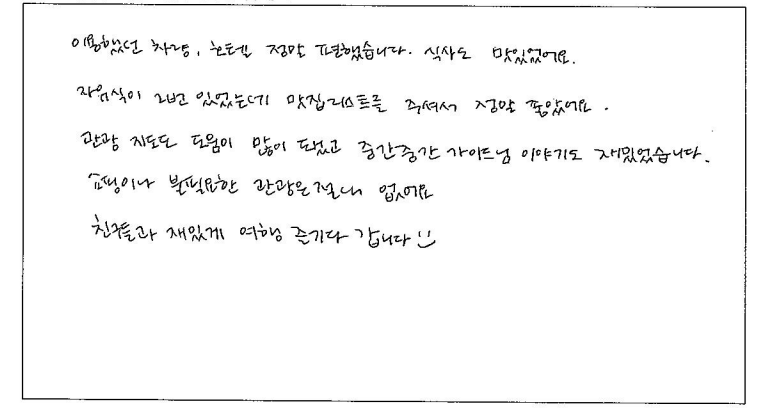 이용했던 차량, 호텔 정말 편했습니다. 식사도 맛있었어요.
자유식이 2번 있었는데 맛집리스트를 주셔서 정말 좋았어요.
관광 지도도 도움이 많이 됐고 중간중간 가이드님 이야기도 재밌었습니다.
쇼핑이나 불필요한 관광은 절대 없어요
친구들과 재있게 여행 즐기다 갑니다 :)